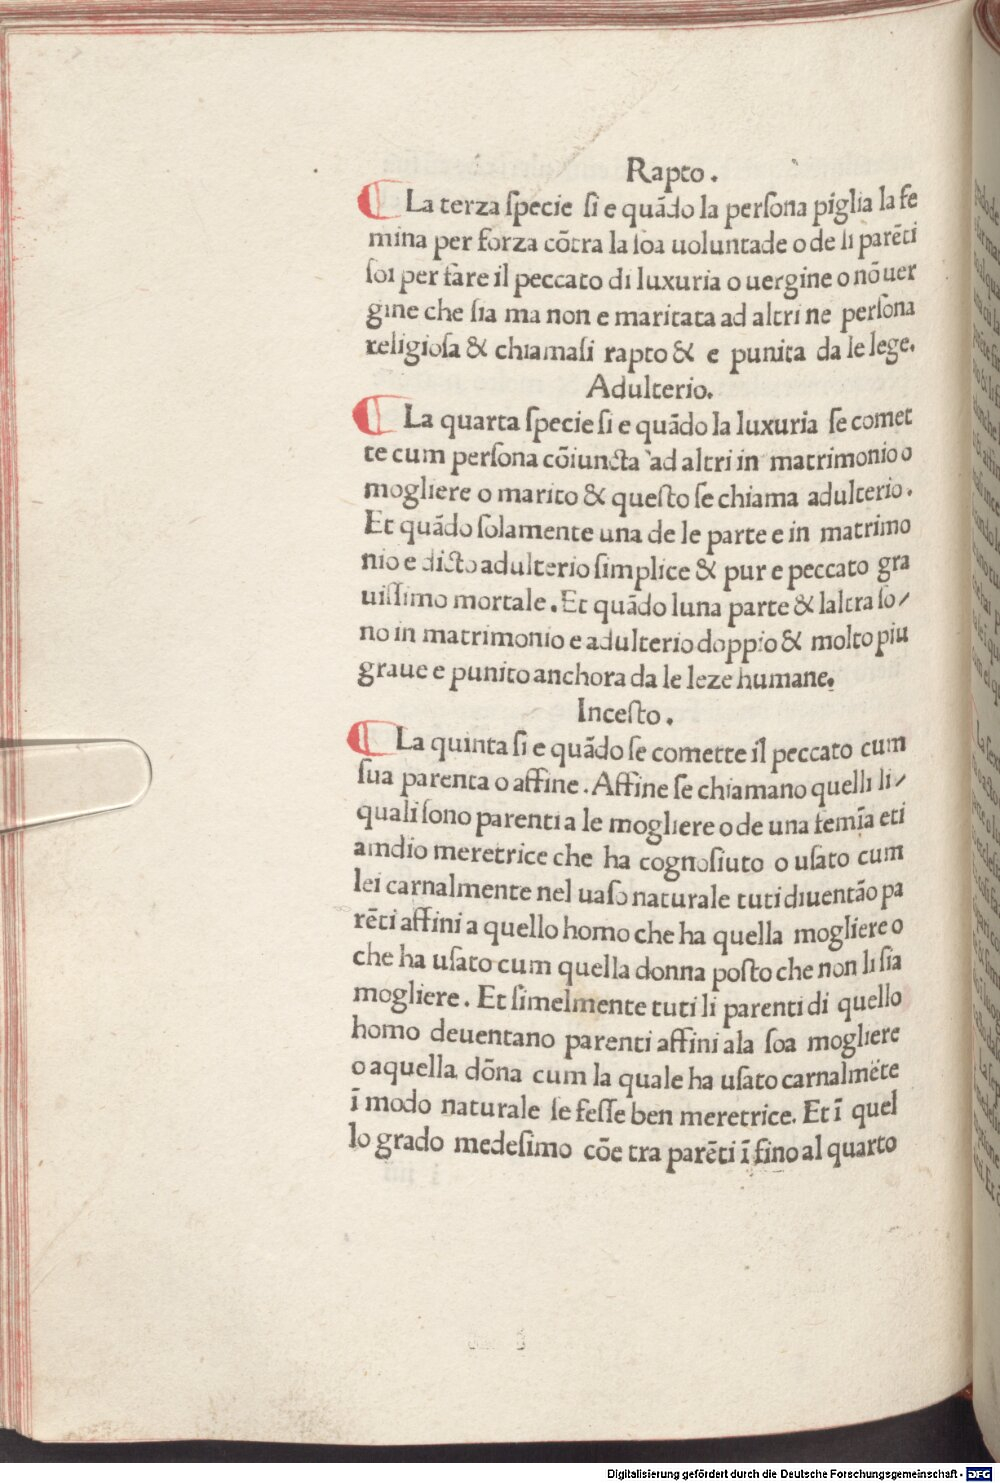 Rapto.
La terza ſpecie ſi e quādo la perſona piglia la fe
mina per forza cōtra la ſoa uoluntade o de li parēti
ſoi per fare il peccato di luxuria o uergine o nō uer
gine che ſia ma non e maritata ad altri ne perſona
religioſa & chiamaſi rapto & e punita da le lege.
Adulterio.
La quarta ſpecie ſi e quādo la luxuria ſe comet
te cum perſona cōiuncta ad altri in matrimonio o
mogliere o marito & queſto ſe chiama adulterio.
Et quādo ſolamente una de le parte e in matrimo
nio e dicto adulterio ſimplice & pur e peccato gra
uiſſimo mortale. Et quādo luna parte & laltra ſo/
no in matrimonio e adulterio doppio & molto piu
graue e punito anchora da le leze humane.
Inceſto.
La quinta ſi e quādo ſe comette il peccato cum
ſua parenta o affine. Affine ſe chiamano quelli li/
quali ſono parenti a le mogliere o de una femīa eti
amdio meretrice che ha cognoſiuto o uſato cum
lei carnalmente nel uaſo naturale tuti diuentāo pa
rēti affini a quello homo che ha quella mogliere o
che ha uſato cum quella donna poſto che non li ſia
mogliere. Et ſimelmente tuti li parenti di quello
homo deuentano parenti affini ala ſoa mogliere
o aquella dōna cum la quale ha uſato carnalmēte
ī modo naturale ſe feſſe ben meretrice. Et ī quel
lo grado medeſimo cōe tra parēti ī fino al quarto
Digitalisierung gefördert durch die Deutsche Forschungsgemeinschaft - DFG